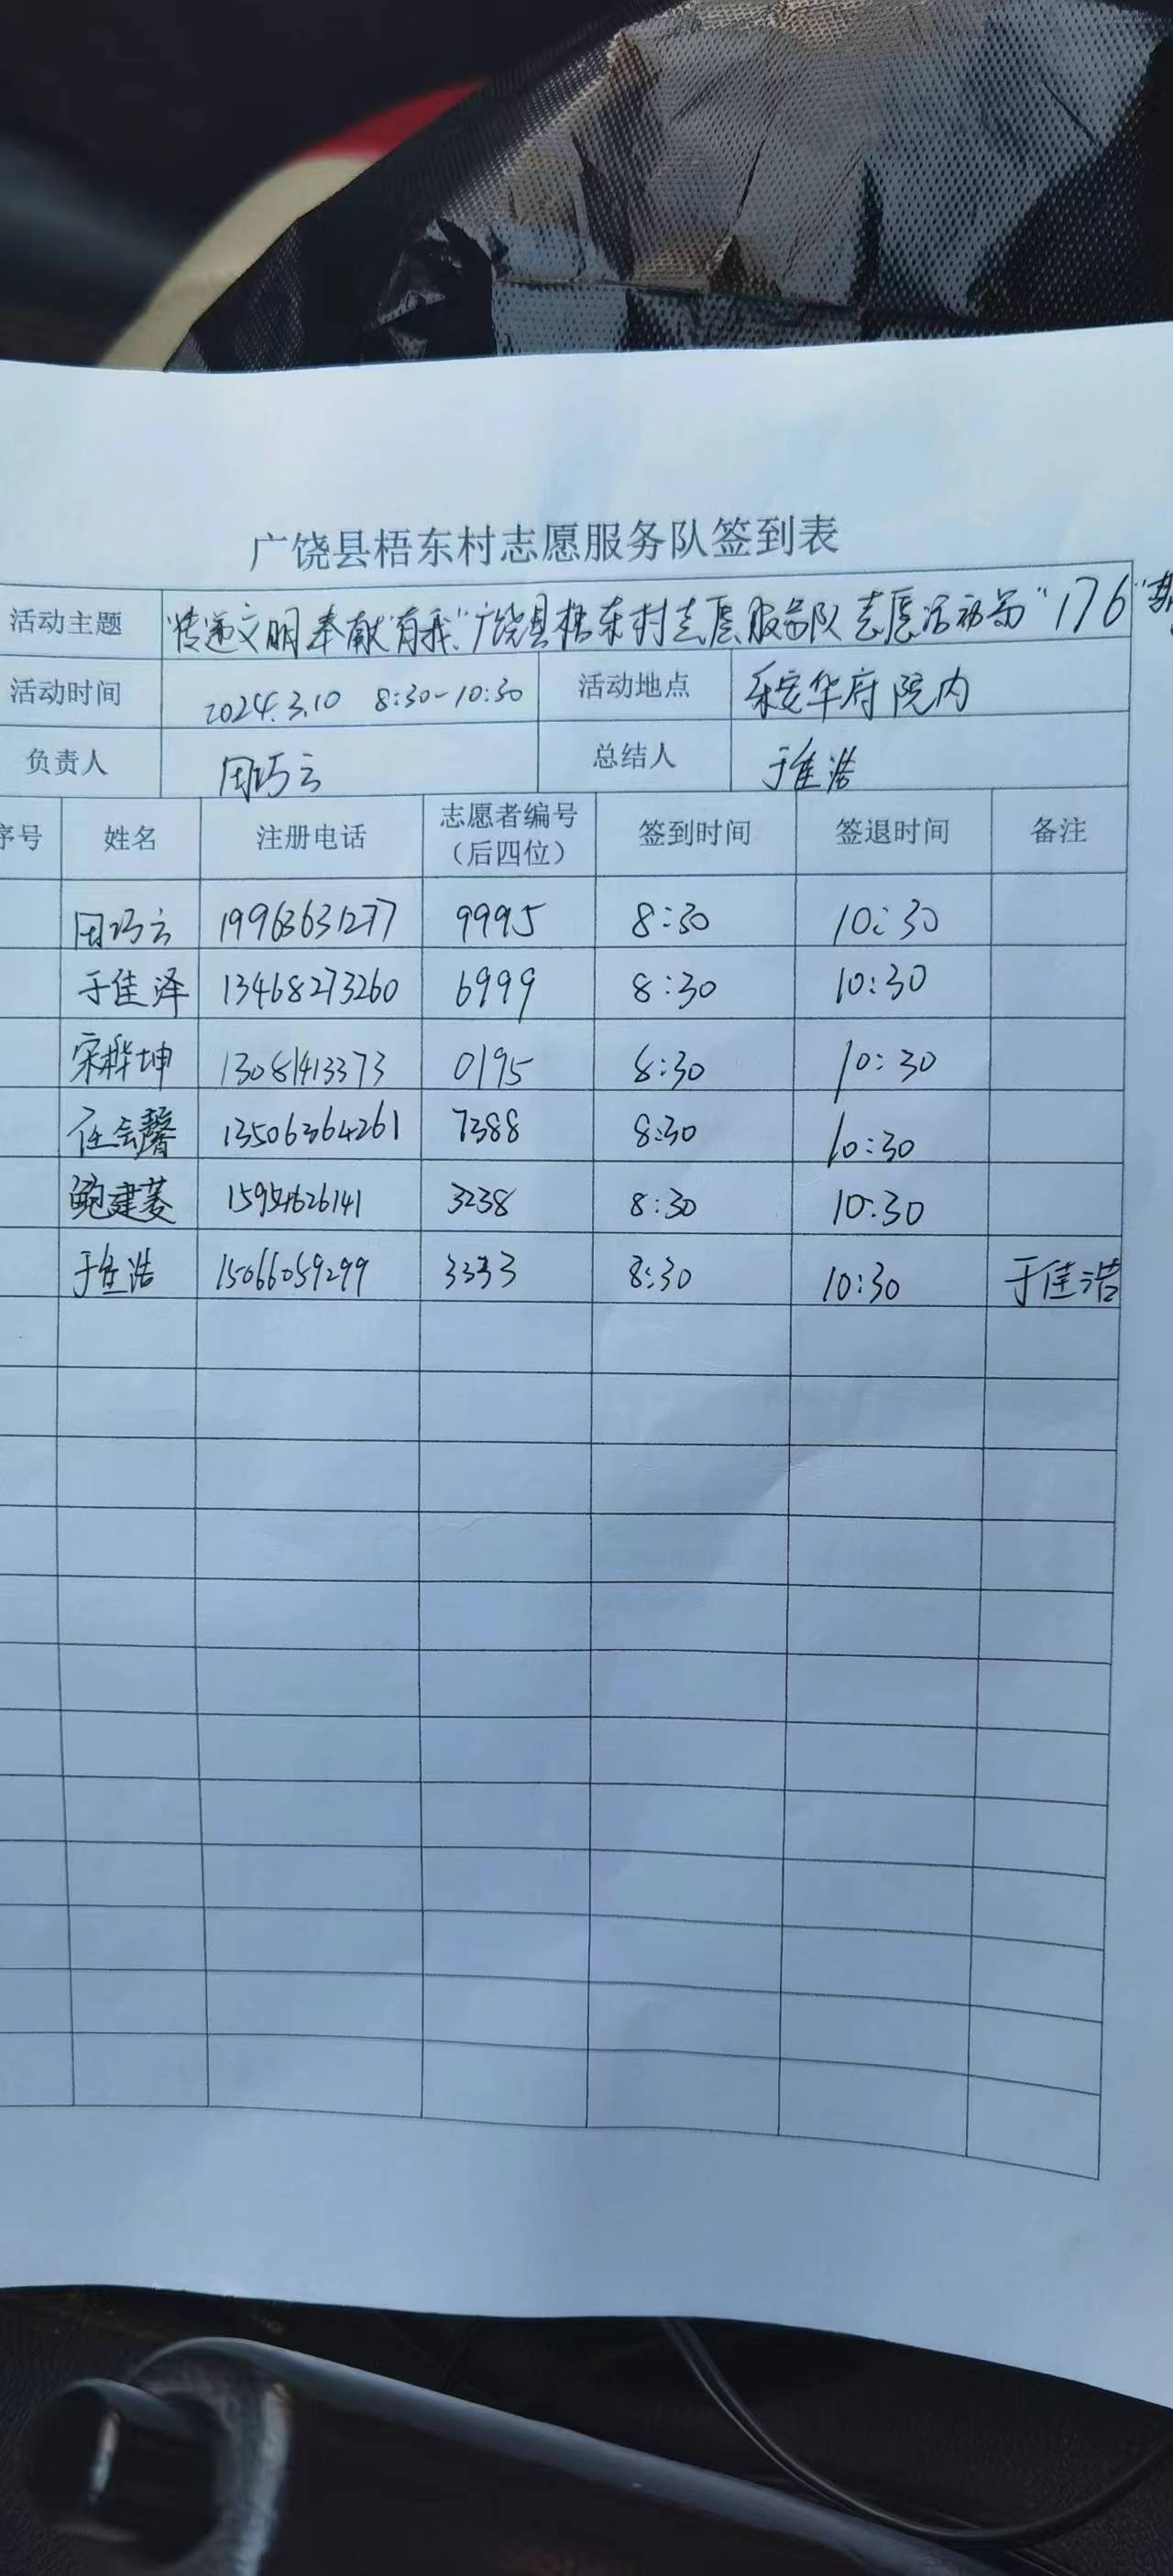 广饶县梧东村志愿服务队签到表
活动主题 “传递文明奉献有我”广饶县梧东村志愿服务队志愿活动第“176”
活动时间 2024.3.10 8:30-10:30 活动地点 乐安华府院内
负责人 周巧云 总结人 于佳浩
序号 姓名 注册电话 志愿者编号（后四位） 签到时间 签退时间 备注
周巧云 19963631277 9995 8:30 10:30
于佳泽 13468273260 6999 8:30 10:30
宋桦坤 13081413373 0195 8:30 10:30
任会馨 13506364261 7388 8:30 10:30
鲍建菱 15954626141 3238 8:30 10:30
于佳浩 15066059299 3333 8:30 10:30 于佳浩